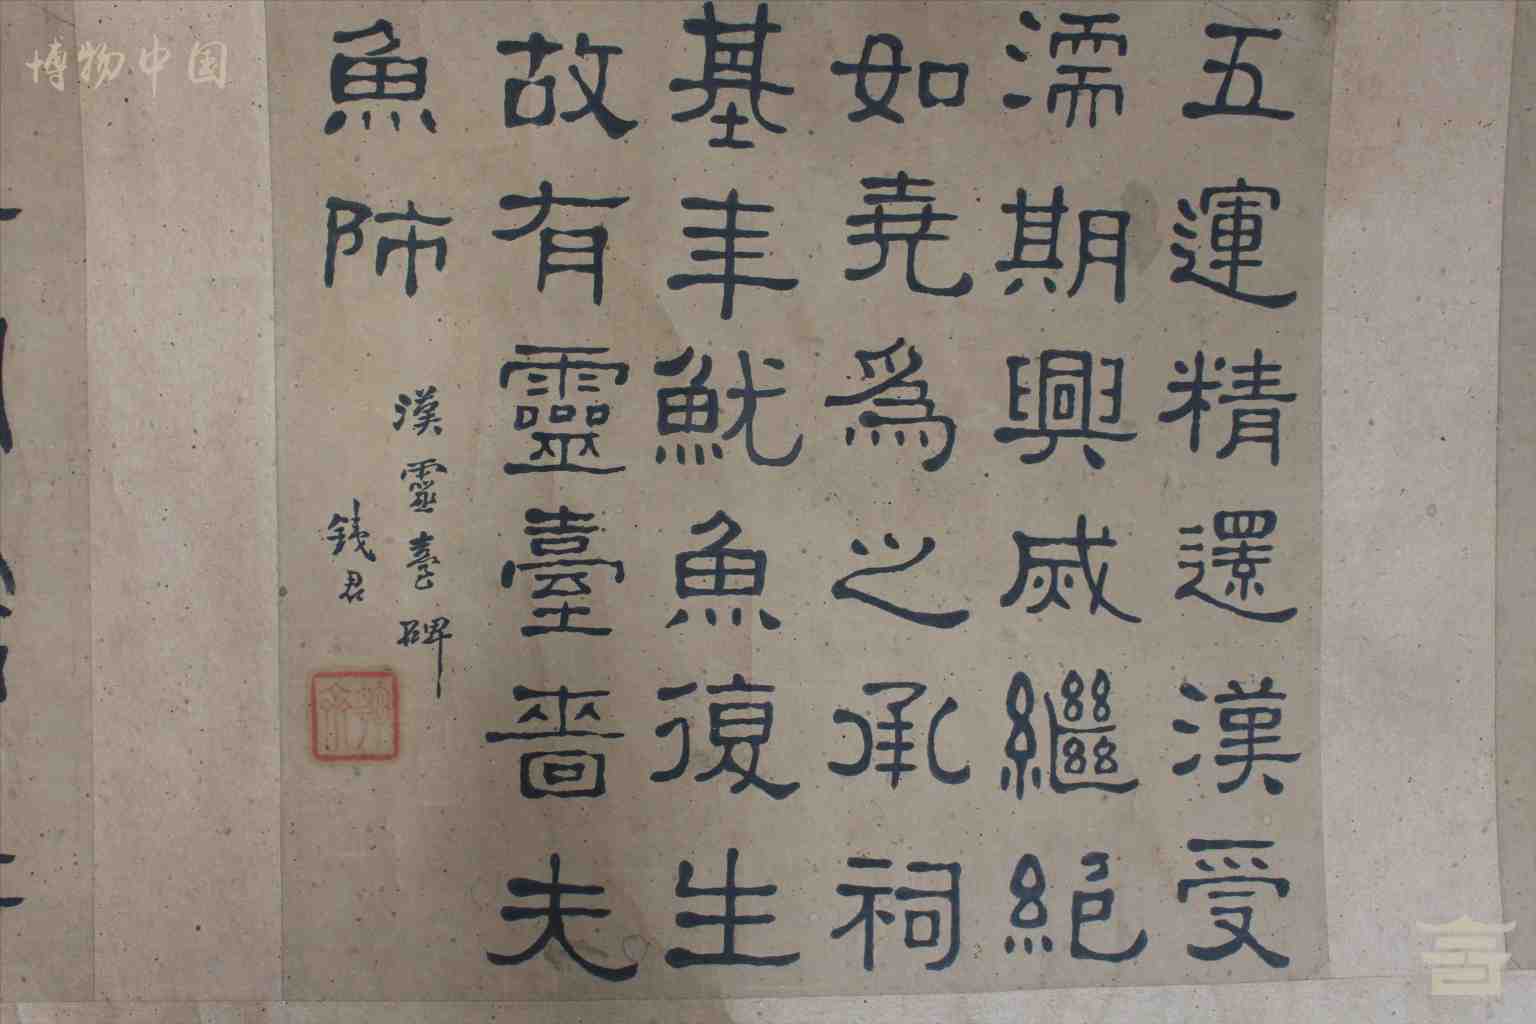 五運精還漢受
濡期興滅繼絕
如堯為之承祠
基年魷魚復生
故有靈臺嗇夫
魚師
漢靈臺碑
錢君
博物中国